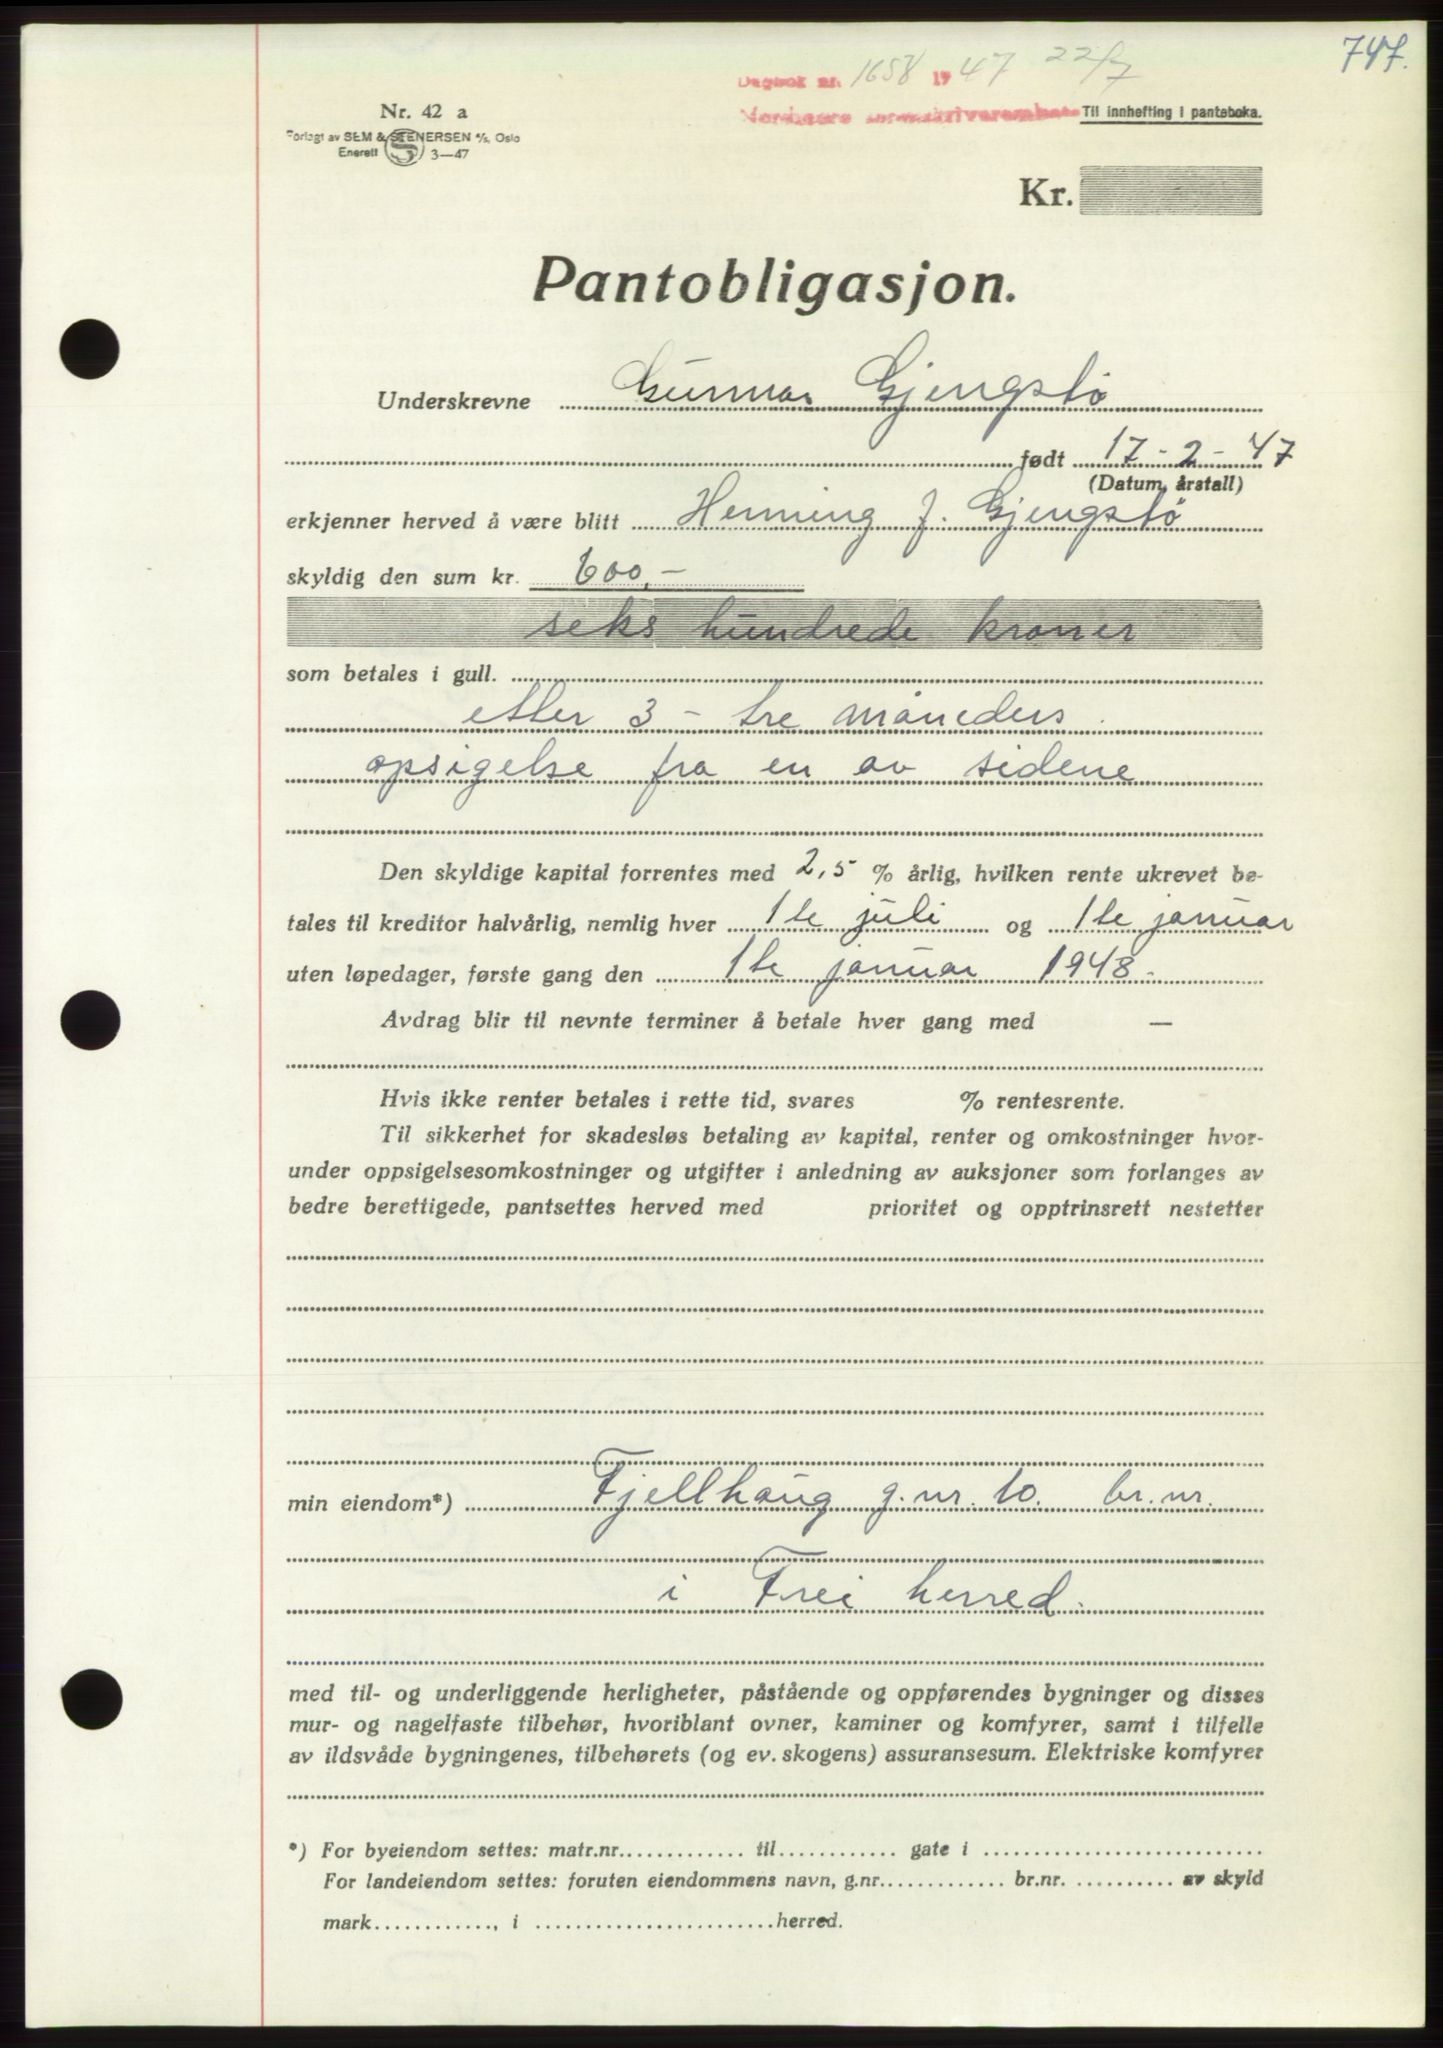 747.
Dagbok nr. 1658 1947 22/7
Nr. 42 a
Forlagt av SEM & STENERSEN A/S, Oslo
Enerett S 3—47
Til innhefting i panteboka.
Kr.
Pantobligasjon.
Underskrevne Gunnar Gjengstø
født 17-2-47
(Datum, årstall)
erkjenner herved å være blitt Henning J. Gjengstø
skyldig den sum kr. 600,-
seks hundrede kroner
som betales i gull.
etter 3 - tre måneders
opsigelse fra en av sidene
Den skyldige kapital forrentes med 2,5 % årlig, hvilken rente ukrevet be-
tales til kreditor halvårlig, nemlig hver 1te juli og 1te januar
uten løpedager, første gang den 1te januar 1948.
Avdrag blir til nevnte terminer å betale hver gang med —
Hvis ikke renter betales i rette tid, svares % rentesrente.
Til sikkerhet for skadesløs betaling av kapital, renter og omkostninger hvor-
under oppsigelsesomkostninger og utgifter i anledning av auksjoner som forlanges av
bedre berettigede, pantsettes herved med prioritet og opptrinsrett nestetter
min eiendom*) Fjellhaug g.nr. 10. br.nr.
i Frei herred.
med til- og underliggende herligheter, påstående og oppførendes bygninger og disses
mur- og nagelfaste tilbehør, hvoriblant ovner, kaminer og komfyrer, samt i tilfelle
av ildsvåde bygningenes, tilbehørets (og ev. skogens) assuransesum. Elektriske komfyrer
*) For byeiendom settes: matr.nr. til gate i
For landeiendom settes: foruten eiendommens navn, g.nr. br.nr. av skyld
mark , i herred.